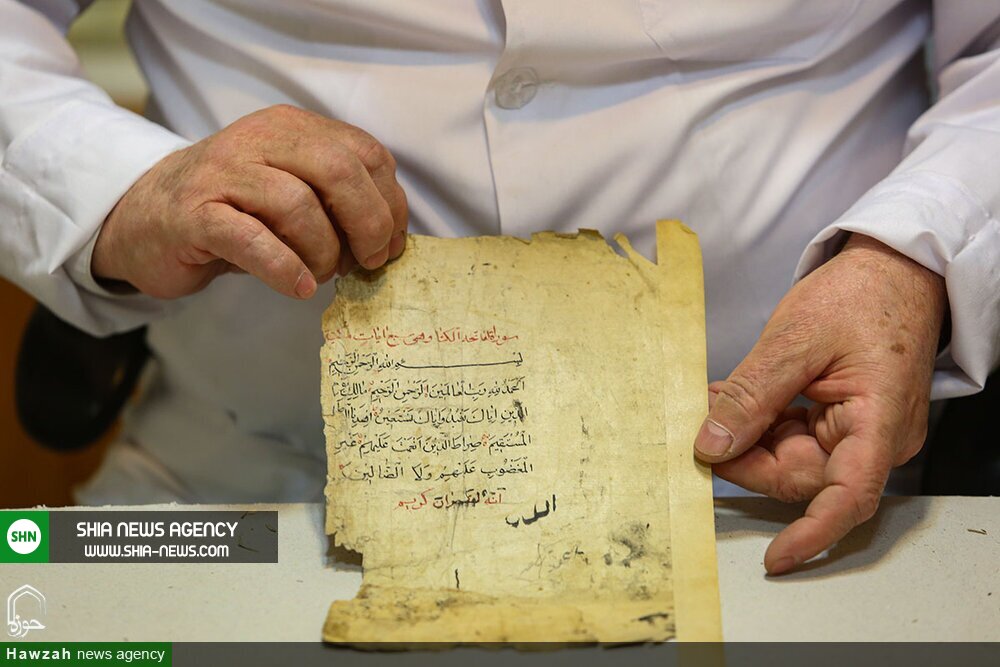 سورة فاتحة الكتاب وهي سبع ايات
بسم الله الرحمن الرحيم
الحمد لله رب العالمين الرحمن الرحيم مالك
الدين اياك نعبد واياك نستعين اهدنا
المستقيم صراط الذين انعمت عليهم غير
المغضوب عليهم ولا الضالين
انه لقران كريم
SHN
SHIA NEWS AGENCY
WWW.SHIA-NEWS.COM
حوزه
Hawzah news agency